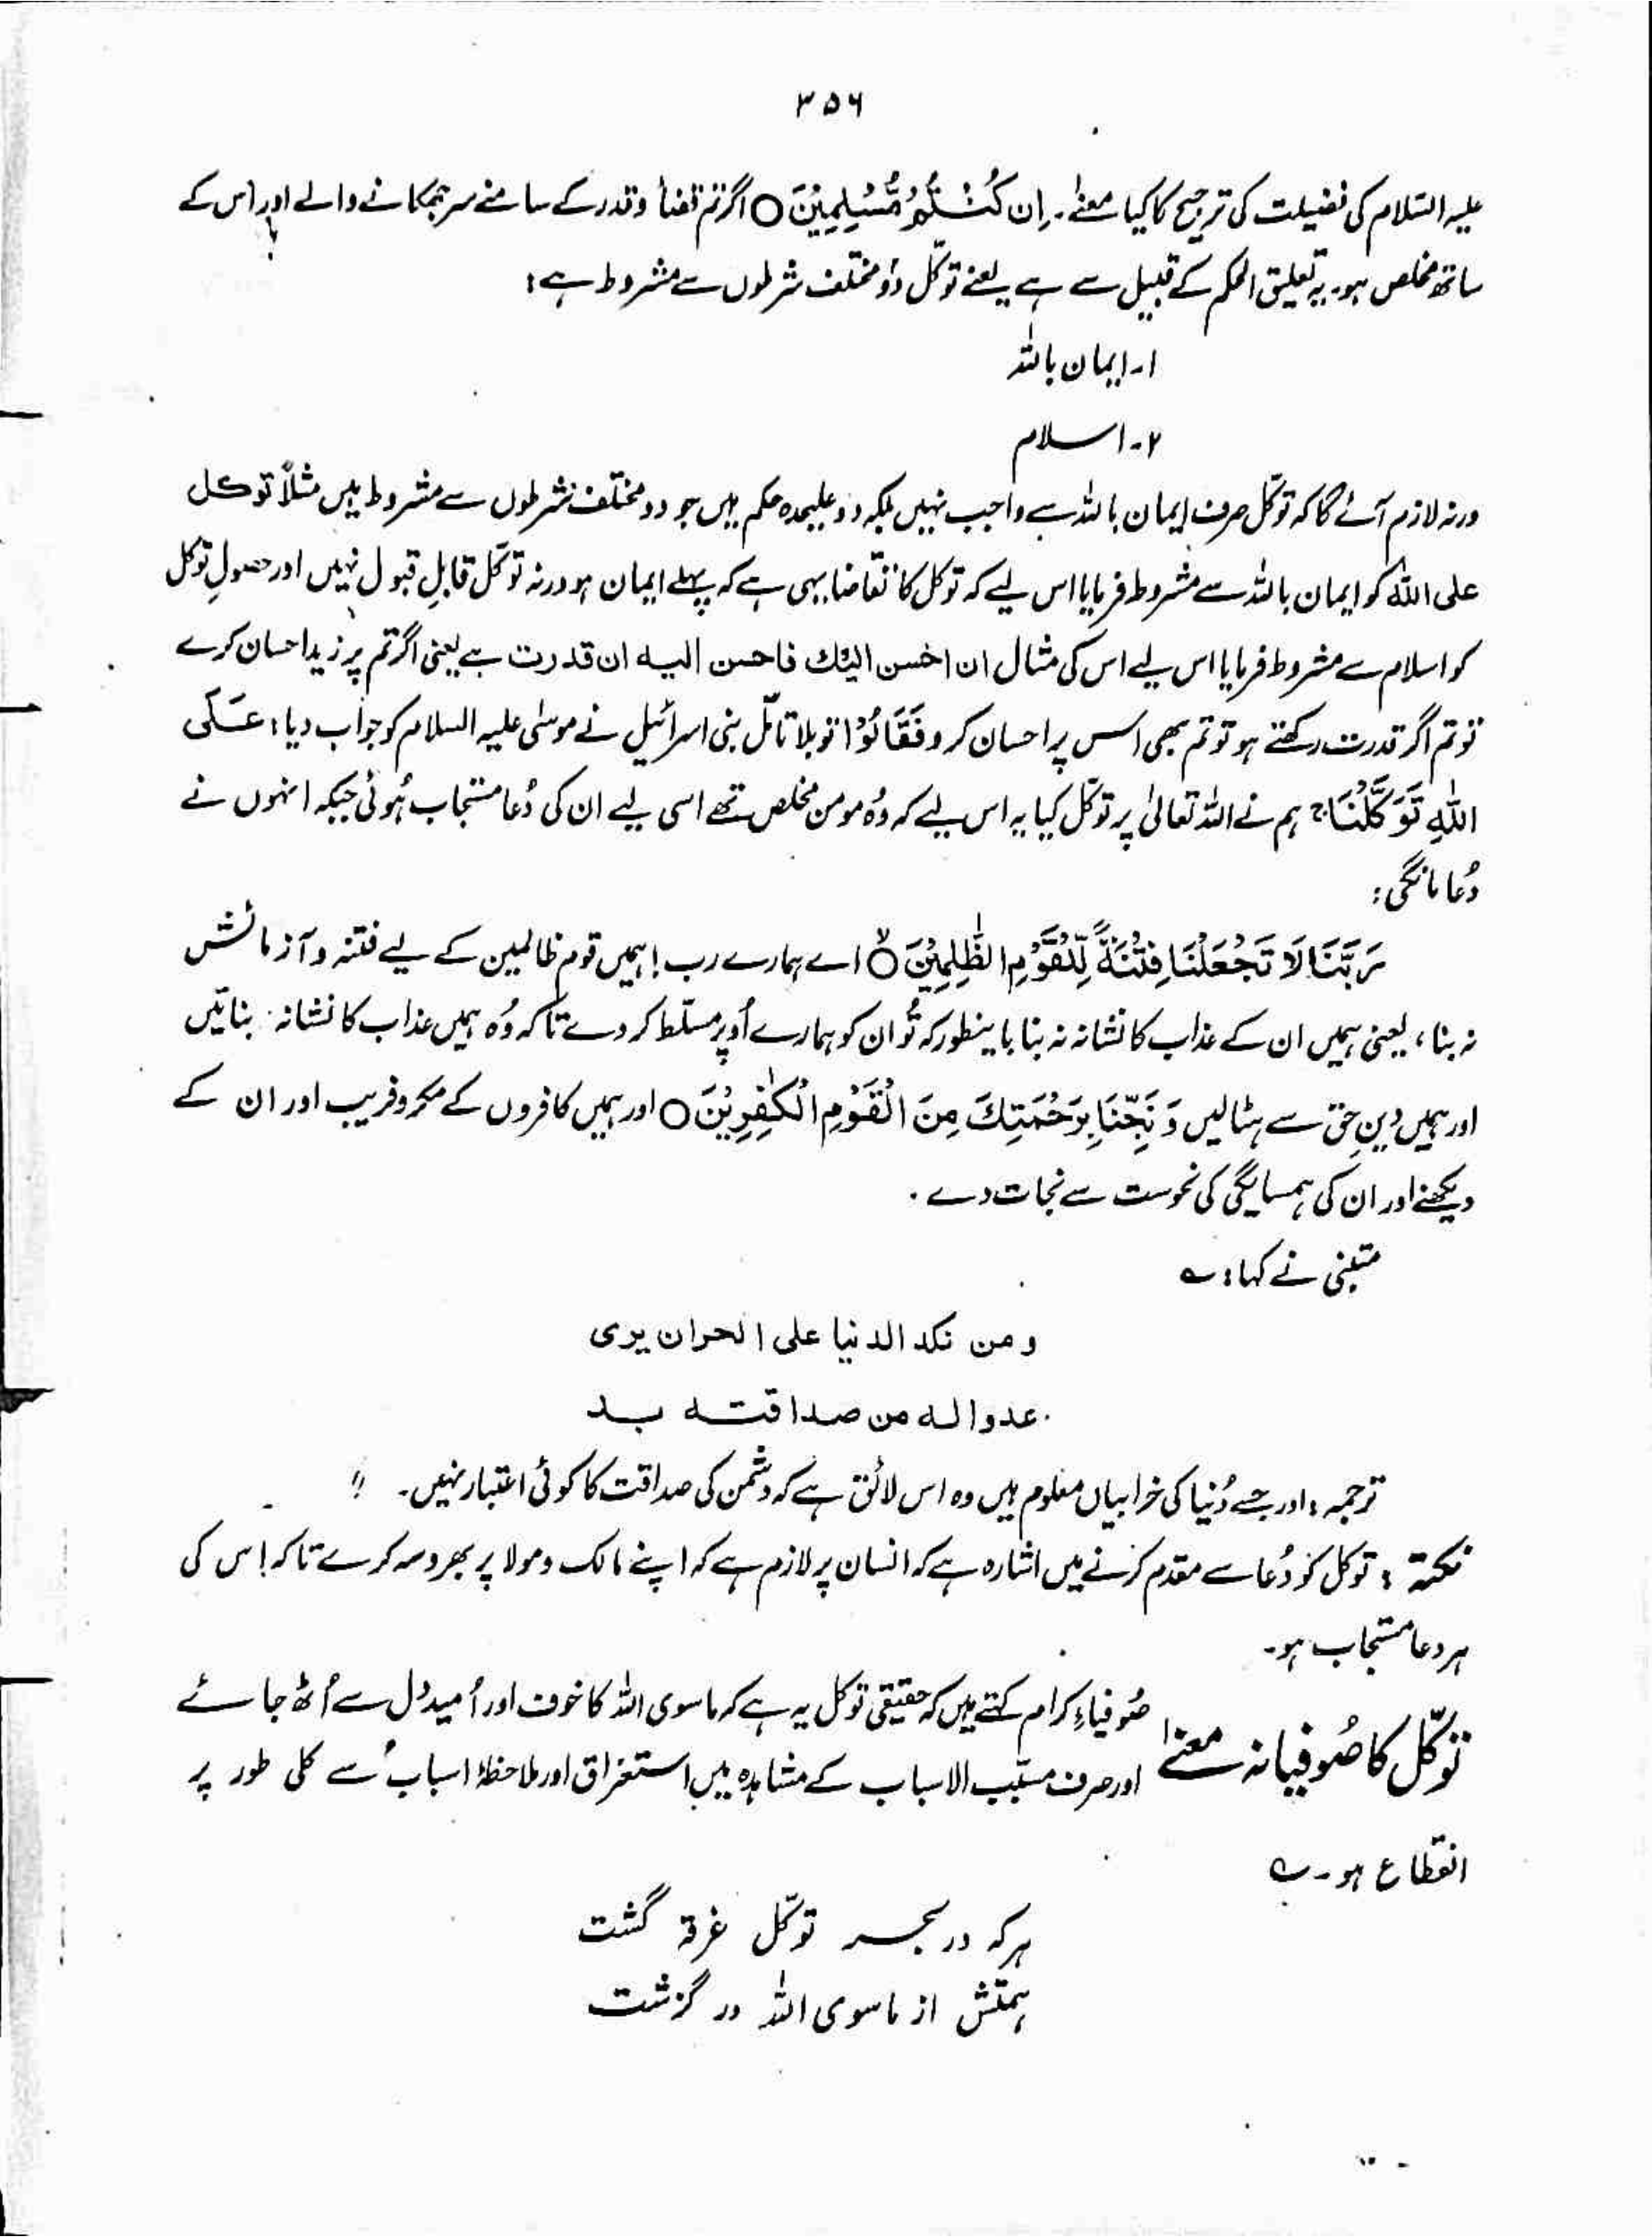 ۳۵۶
علیہ السّلام کی فضیلت کی ترجیح کا کیا معنےٰ۔ اِن كُنْتُمْ مُّسْلِمِيْنَ ○ اگر تم قضأ و قدر کے سامنے سر جھکانے والے اور اس کے
ساتھ مخلص ہو۔ یہ تعلیق الحکم کے قبیل سے ہے یعنے توکّل دوٗ مختلف شرطوں سے مشروط ہے:
۱۔ ایمان باللہ
۲۔ اسلام
ورنہ لازم آئے گا کہ توکّل صرف ایمان باللہ سے واجب نہیں بلکہ دو علیحدہ حکم ہیں جو دو مختلف شرطوں سے مشروط ہیں مثلاً توکل
علی اللہ کو ایمان باللہ سے مشروط فرمایا اس لیے کہ توکل کا تقاضا یہی ہے کہ پہلے ایمان ہو ورنہ توکّل قابلِ قبول نہیں اور حصولِ توکل
کو اسلام سے مشروط فرمایا اس لیے اس کی مثال ان احسن الیك فاحسن الیہ ان قدرت ہے یعنی اگر تم پر زید احسان کرے
تو تم اگر قدرت رکھتے ہو تو تم بھی اس پر احسان کرو فَقَالُوْا تو بلا تامّل بنی اسرائیل نے موسٰی علیہ السلام کو جواب دیا: عَلَى
اللّٰهِ تَوَكَّلْنَا ج ہم نے اللہ تعالٰی پر توکّل کیا یہ اس لیے کہ وُہ مومن مخلص تھے اسی لیے ان کی دُعا مستجاب ہُوئی جبکہ انہوں نے
دُعا مانگی:
رَبَّنَا لَا تَجْعَلْنَا فِتْنَةً لِّلْقَوْمِ الظّٰلِمِيْنَ ○ لا اے ہمارے رب! ہمیں قوم ظالمین کے لیے فتنہ و آزمائش
نہ بنا، یعنی ہمیں ان کے عذاب کا نشانہ نہ بنا باینطور کہ تُو ان کو ہمارے اُوپر مسلّط کر دے تاکہ وُہ ہمیں عذاب کا نشانہ بنائیں
اور ہمیں دینِ حق سے ہٹالیں وَ نَجِّنَا بِرَحْمَتِكَ مِنَ الْقَوْمِ الْكٰفِرِيْنَ ○ اور ہمیں کافروں کے مکر و فریب اور ان کے
دیکھنے اور ان کی ہمسائیگی کی نحوست سے نجات دے۔
متبنی نے کہا: ؎
و من نکد الدنیا علی الحران یری
عدوالہ من صداقتہ بد
ترجمہ: اور جسے دُنیا کی خرابیاں معلوم ہیں وہ اس لائق ہے کہ دشمن کی صداقت کا کوئی اعتبار نہیں۔
نکتہ: توکل کو دُعا سے مقدم کرنے میں اشارہ ہے کہ انسان پر لازم ہے کہ اپنے مالک و مولا پر بھروسہ کرے تاکہ اس کی
ہر دعا مستجاب ہو۔
توکّل کا صُوفیانہ معنےٰ
صُوفیاءِ کرام کہتے ہیں کہ حقیقی توکل یہ ہے کہ ماسوی اللہ کا خوف اور اُمید دل سے اُٹھ جائے
اور صرف مسبّب الاسباب کے مشاہدہ میں استغراق اور ملاحظۂ اسباب سے کلی طور پر
انقطاع ہو۔ ؎
ہر کہ در بحر توکّل غرقہ گشت
ہمتش از ماسوی اللہ در گزشت